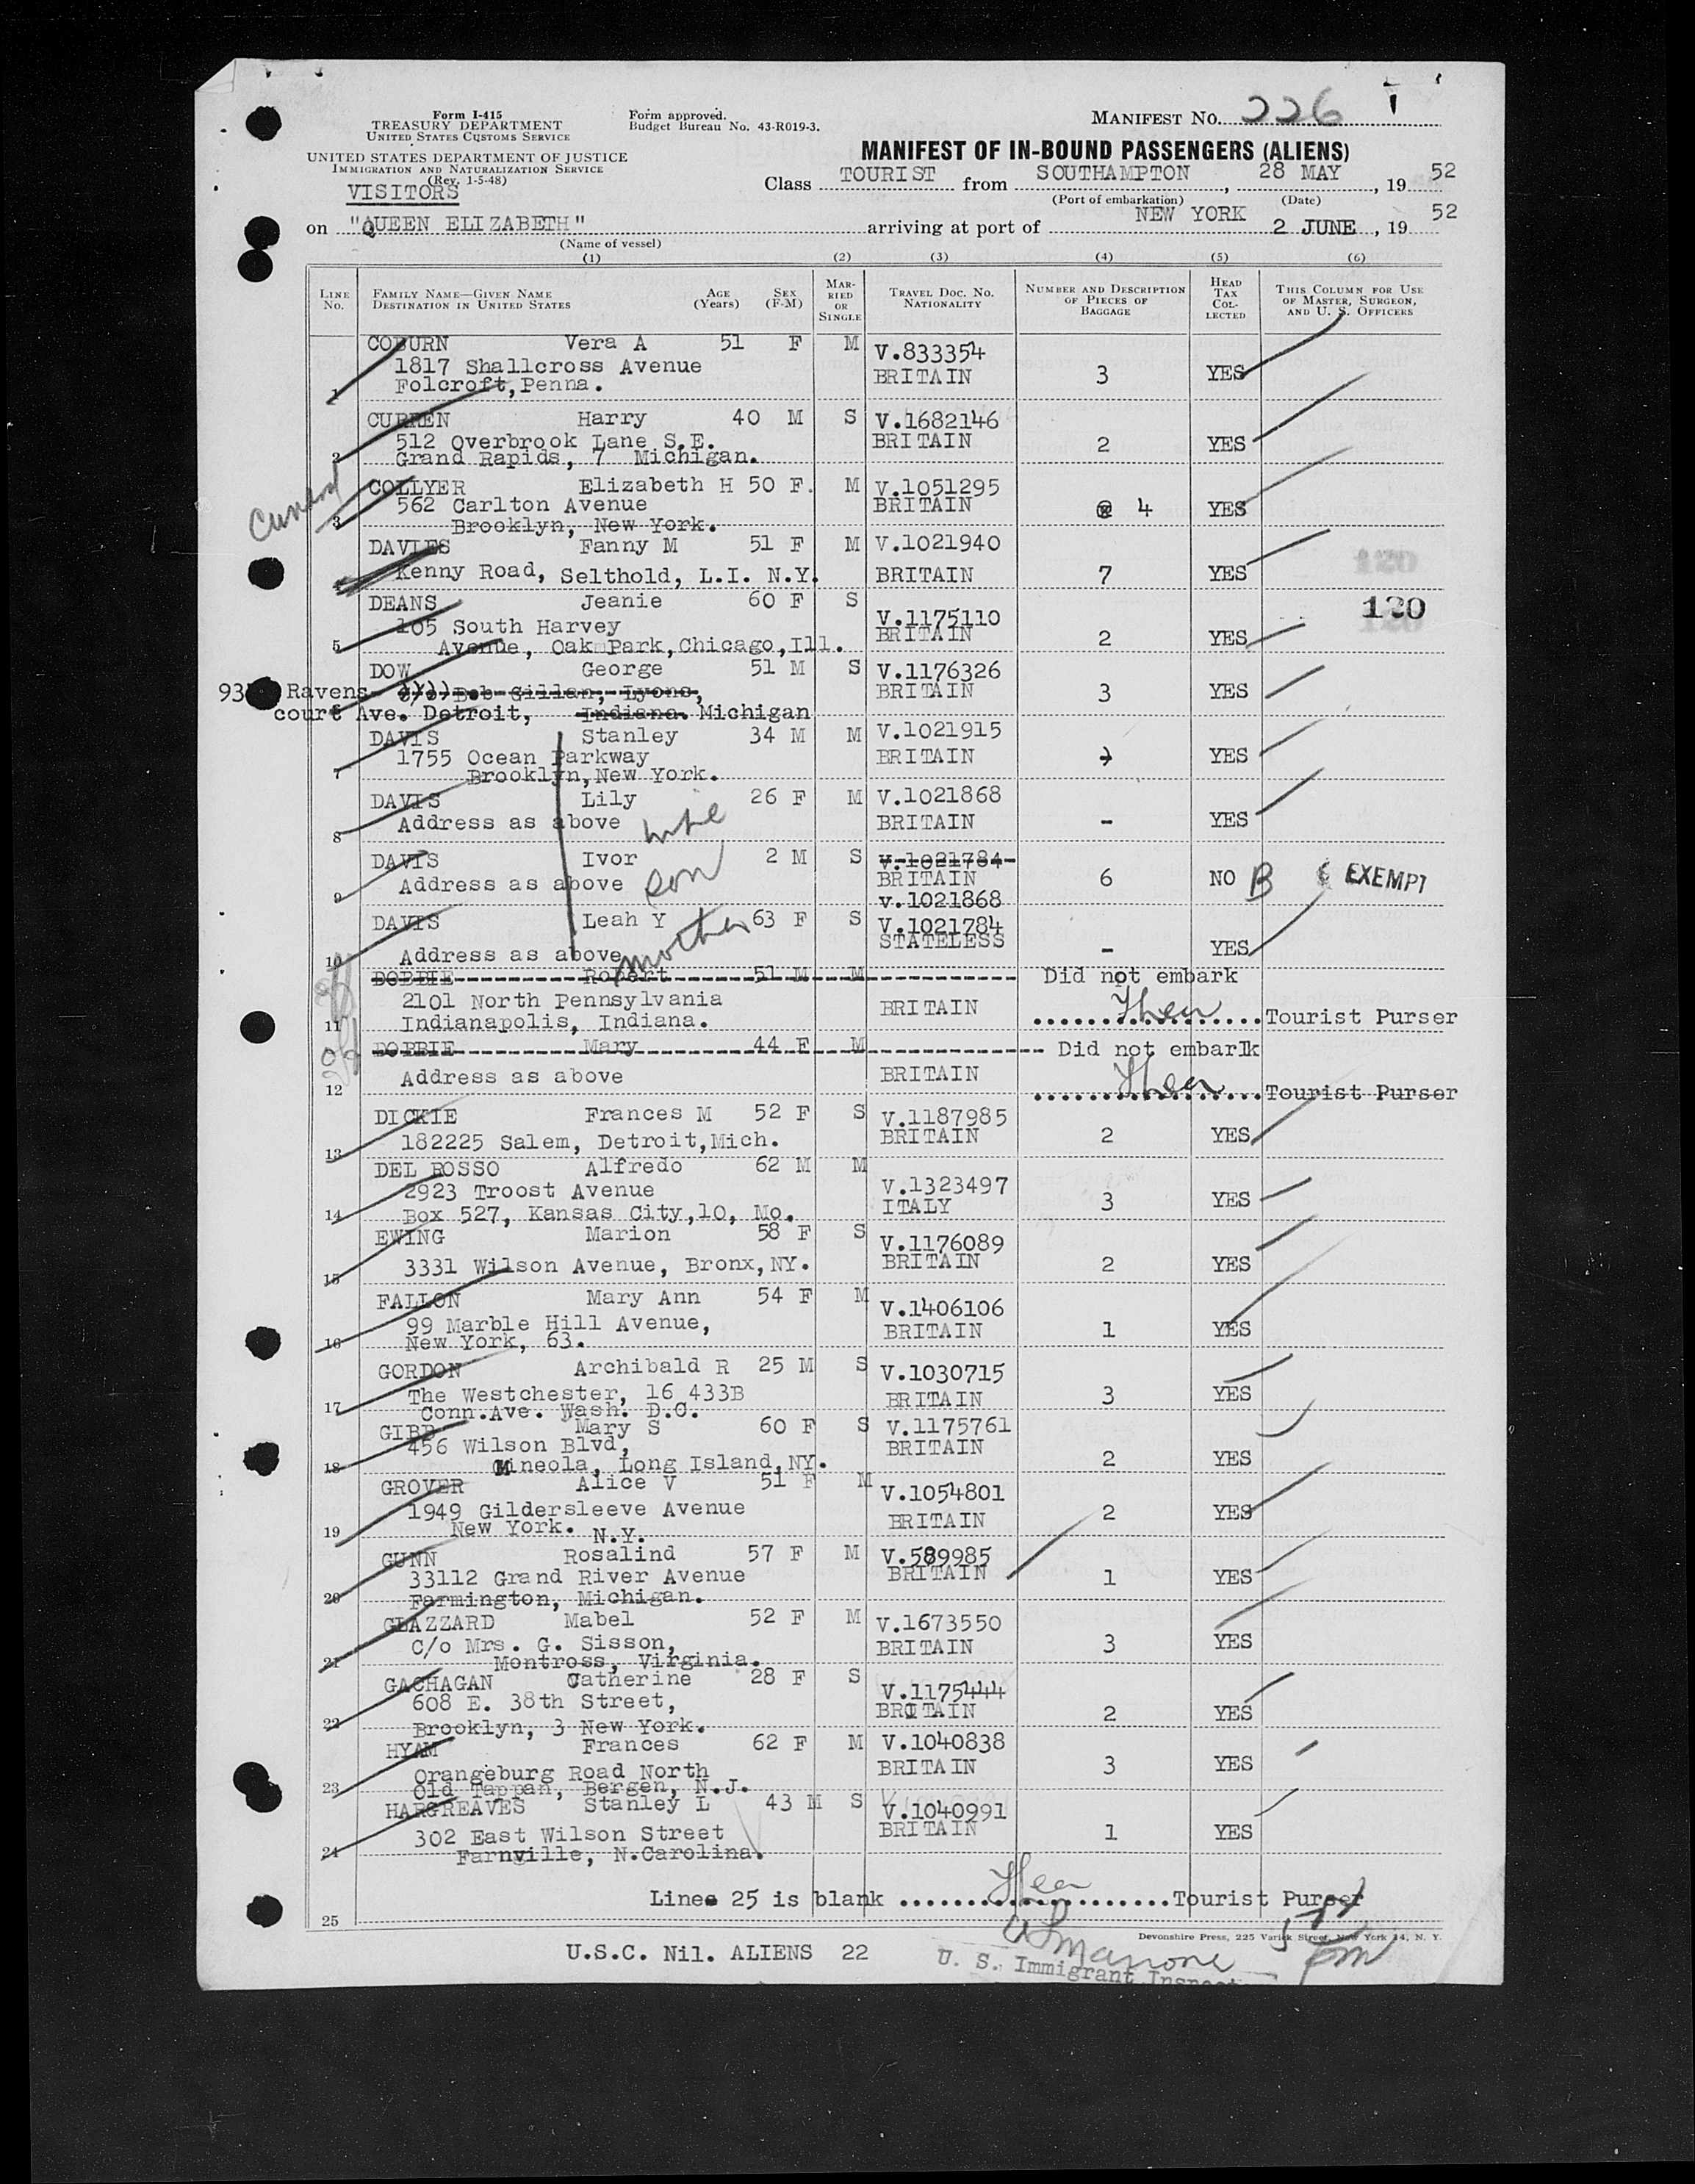 Form I-415
TREASURY DEPARTMENT
UNITED STATES CUSTOMS SERVICE
UNITED STATES DEPARTMENT OF JUSTICE
IMMIGRATION AND NATURALIZATION SERVICE
(Rev. 1-5-48)
VISITORS
Form approved.
Budget Bureau No. 43-R019-3.
MANIFEST NO. 226
MANIFEST OF IN-BOUND PASSENGERS (ALIENS)
Class TOURIST from SOUTHAMPTON, 28 MAY, 19 52
(Port of embarkation) (Date)
on "QUEEN ELIZABETH" arriving at port of NEW YORK 2 JUNE, 19 52
(Name of vessel)
(1) (2) (3) (4) (5) (6)
LINE NO. FAMILY NAME—GIVEN NAME DESTINATION IN UNITED STATES AGE (Years) SEX (F-M) MARRIED OR SINGLE TRAVEL DOC. NO. NATIONALITY NUMBER AND DESCRIPTION OF PIECES OF BAGGAGE HEAD TAX COLLECTED THIS COLUMN FOR USE OF MASTER, SURGEON, AND U. S. OFFICERS
COBURN Vera A 51 F M V.833354
1817 Shallcross Avenue BRITAIN 3 YES
1 Folcroft, Penna.
CURREN Harry 40 M S V.1682146
512 Overbrook Lane S.E. BRITAIN 2 YES
2 Grand Rapids, 7 Michigan.
Cunard
COLLYER Elizabeth H 50 F. M V.1051295
562 Carlton Avenue BRITAIN 4 YES
3 Brooklyn, New York.
DAVIES Fanny M 51 F M V.1021940
Kenny Road, Selthold, L.I. N.Y. BRITAIN 7 YES
120
DEANS Jeanie 60 F S V.1175110
105 South Harvey BRITAIN 2 YES
5 Avenue, Oak Park, Chicago, Ill.
120
DOW George 51 M S V.1176326
93 Ravens- Bob Gillen, Lyons, BRITAIN 3 YES
court Ave. Detroit, Indiana. Michigan
DAVIS Stanley 34 M M V.1021915
1755 Ocean Parkway BRITAIN YES
7 Brooklyn, New York.
DAVIS Lily 26 F M V.1021868
8 Address as above wife BRITAIN - YES
DAVIS Ivor 2 M S V.1021784
9 Address as above son BRITAIN 6 NO B EXEMPT
v.1021868
DAVIS Leah Y 63 F S V.1021784
STATELESS
10 Address as above mother - YES
DOBBIE Robert 51 M M Did not embark
2101 North Pennsylvania BRITAIN
11 Indianapolis, Indiana. Tourist Purser
DOBBIE Mary 44 F M Did not embarlk
Address as above BRITAIN
12 Tourist Purser
DICKIE Frances M 52 F S V.1187985
13 182225 Salem, Detroit, Mich. BRITAIN 2 YES
DEL ROSSO Alfredo 62 M M V.1323497
2923 Troost Avenue ITALY 3 YES
14 Box 527, Kansas City, 10, Mo.
EWING Marion 58 F S V.1176089
15 3331 Wilson Avenue, Bronx, NY. BRITAIN 2 YES
FALLON Mary Ann 54 F M V.1406106
99 Marble Hill Avenue, BRITAIN 1 YES
16 New York, 63.
GORDON Archibald R 25 M S V.1030715
The Westchester, 16 433B BRITAIN 3 YES
17 Conn.Ave. Wash. D.C.
GIBB Mary S 60 F S V.1175761
456 Wilson Blvd, BRITAIN 2 YES
18 Mineola, Long Island, NY.
GROVER Alice V 51 F M V.1054801
1949 Gildersleeve Avenue BRITAIN 2 YES
19 New York. N.Y.
GUNN Rosalind 57 F M V.589985
33112 Grand River Avenue BRITAIN 1 YES
20 Farmington, Michigan.
GLAZZARD Mabel 52 F M V.1673550
C/o Mrs. G. Sisson, BRITAIN 3 YES
21 Montross, Virginia.
GACHAGAN Catherine 28 F S V.1175444
608 E. 38th Street, BRITAIN 2 YES
22 Brooklyn, 3 New York.
HYAM Frances 62 F M V.1040838
Orangeburg Road North BRITAIN 3 YES
23 Old Tappan, Bergen, N.J.
HARGREAVES Stanley L 43 M S V.1040991
302 East Wilson Street BRITAIN 1 YES
24 Farnville, N.Carolina.
Line 25 is blank Tourist Purser
25
Devonshire Press, 225 Varick Street, New York 14, N. Y.
U.S.C. Nil. ALIENS 22
U. S. Immigrant Inspect